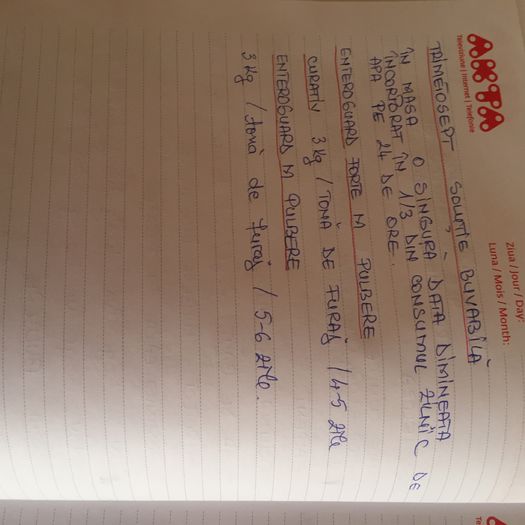 AKTA
Televiziune | Internet | Telefonie
Ziua / Jour / Day:
Luna / Mois / Month:
TRIMETOSEPT SOLUȚIE BUVABILĂ
ÎN MASA O SINGURĂ DATĂ DIMINEAȚA
ÎNCORPORAT ÎN 1/3 DIN CONSUMUL ZILNIC DE
APĂ PE 24 DE ORE.
ENTEROGUARD FORTE M PULBERE
CURATIV 3 Kg / TONĂ DE FURAJ / 4-5 zile
ENTEROGUARD M PULBERE
3 Kg / tonă de furaj / 5-6 zile.